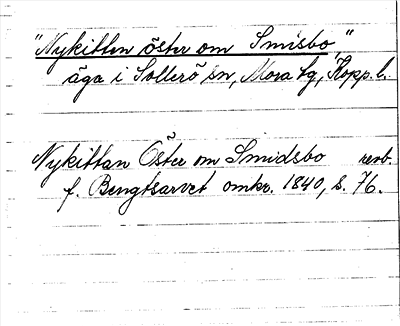 "Nykitten öster om Smisbo,"
äga i Sollerö sn, Mora tg, Kopp. l.
Nykittan Öster om Smidsbo resb.
f. Bengtsarvet omkr. 1840, s. 76.